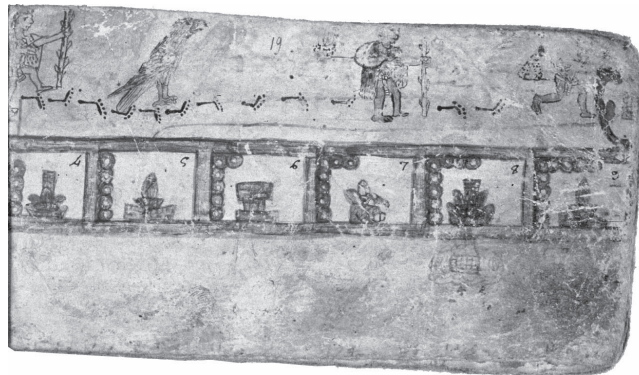 19
4 5 6 7 8